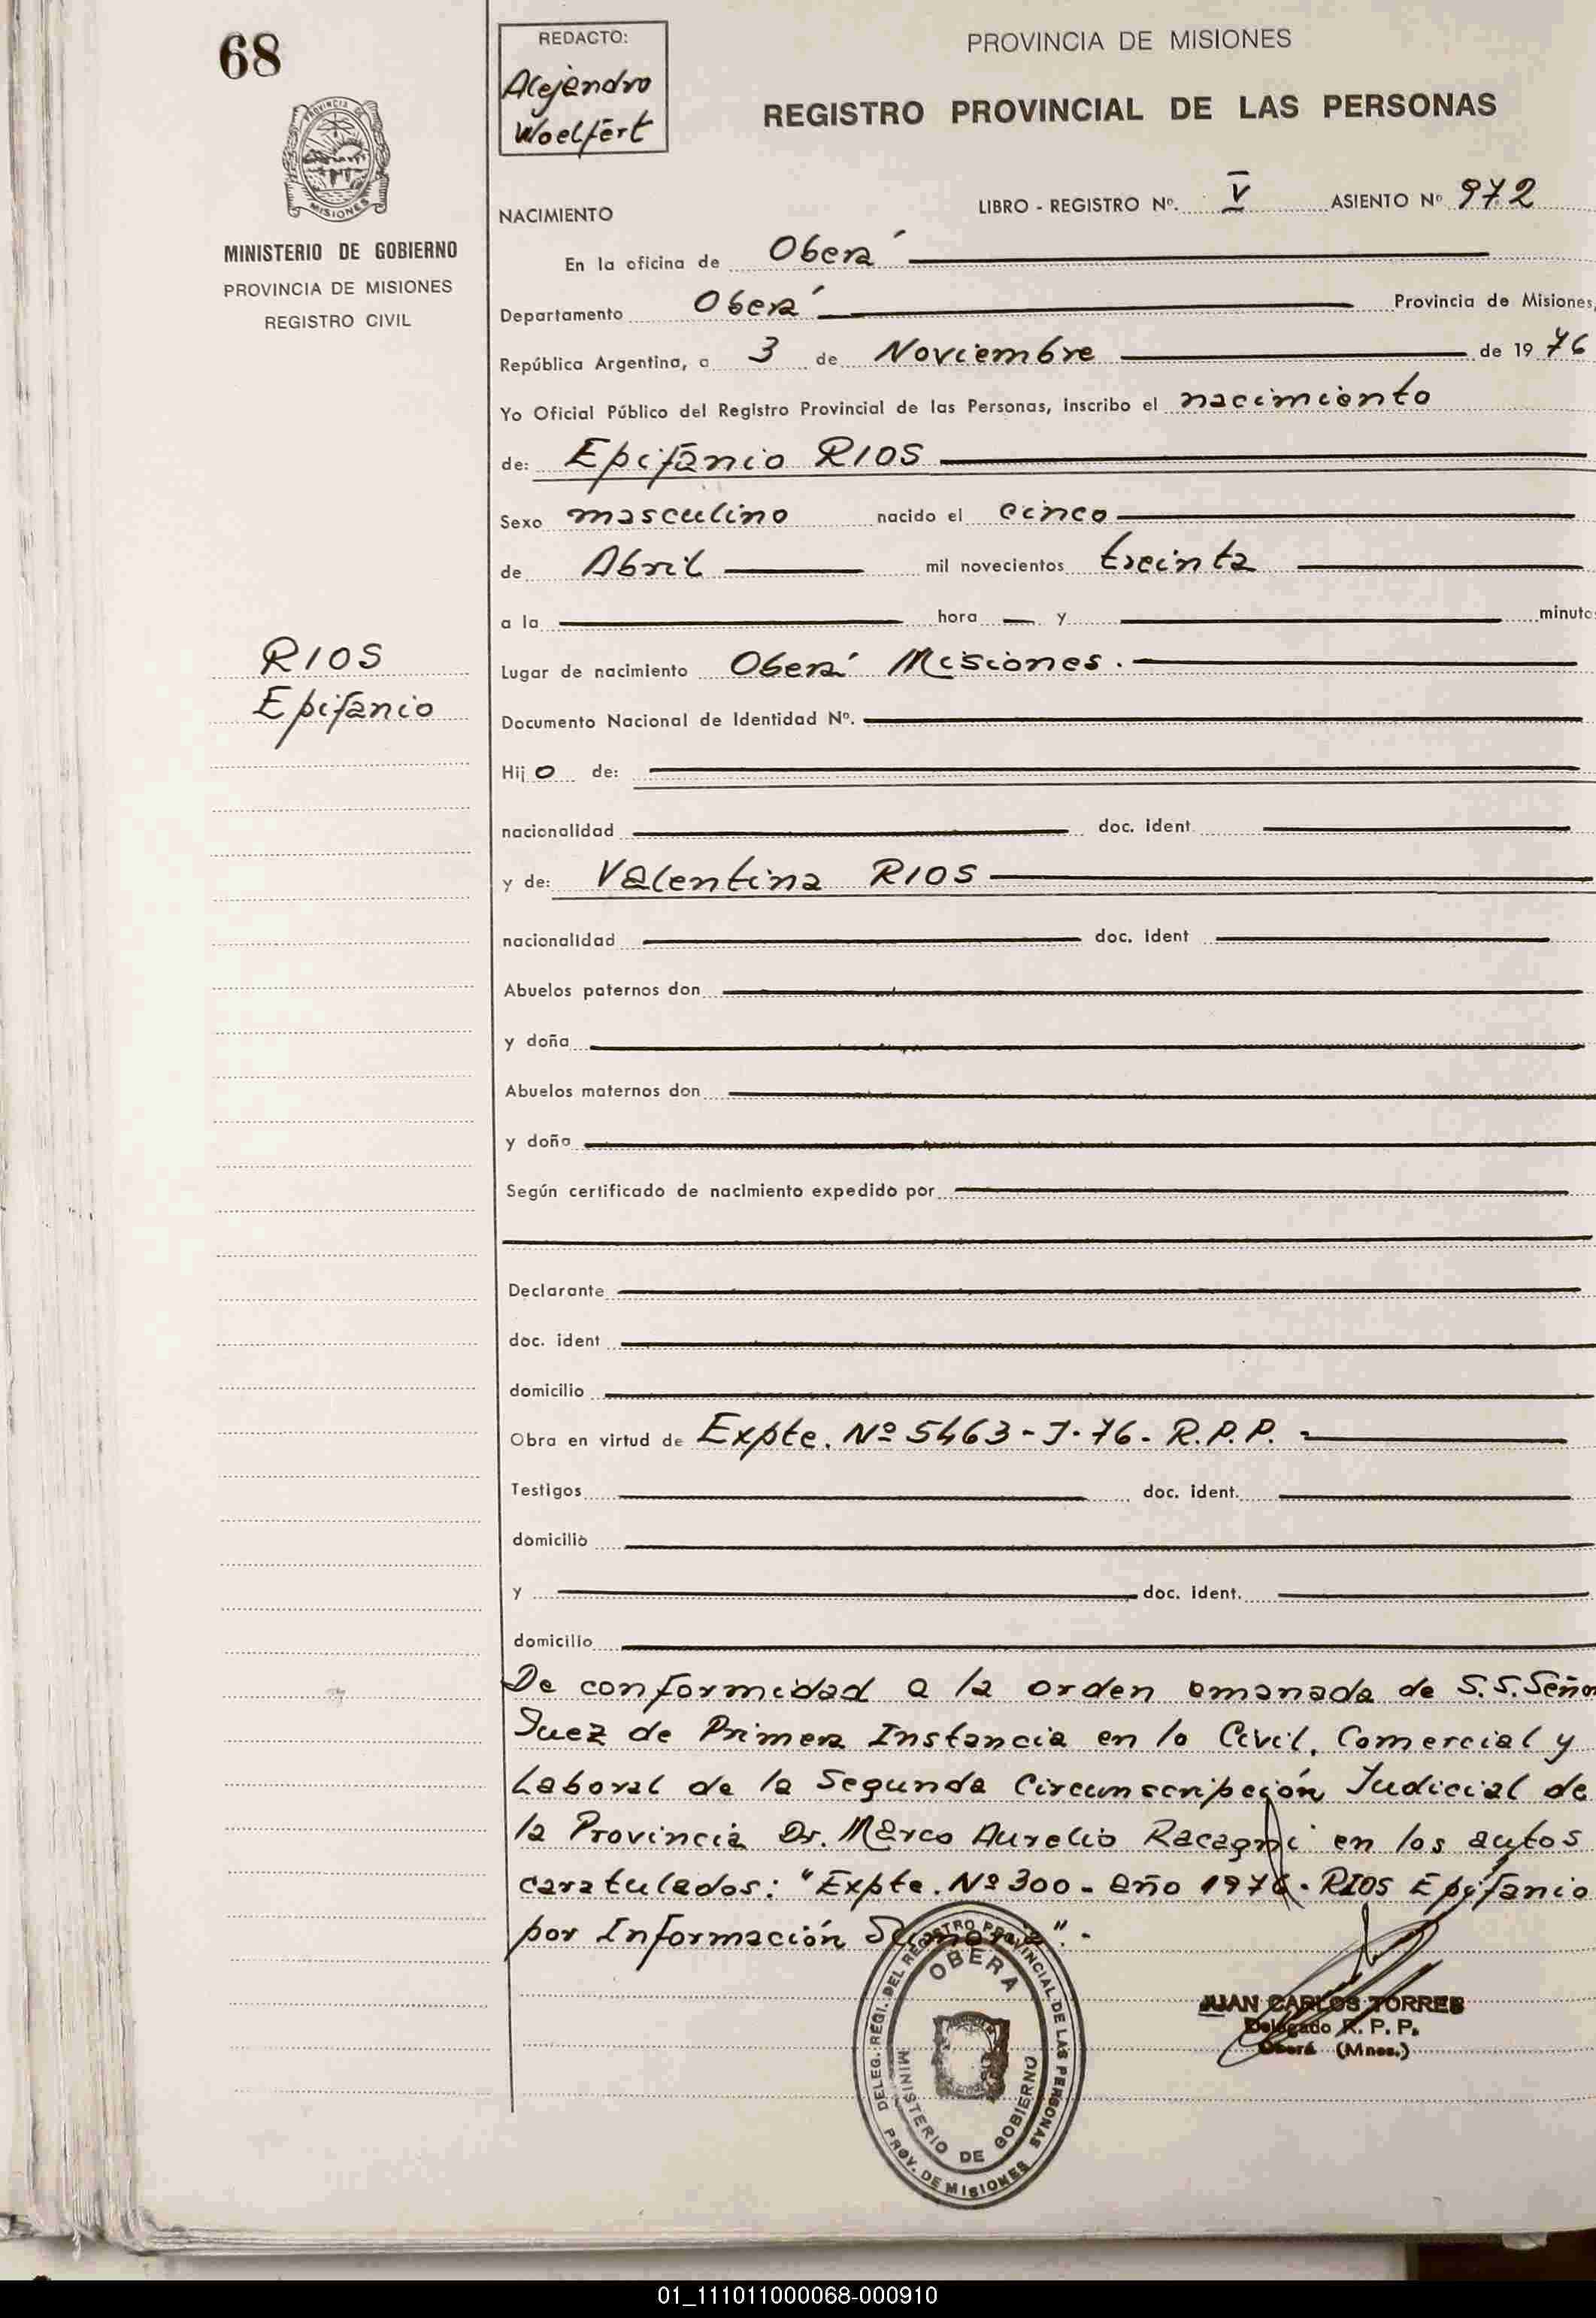 68
REDACTO:
Alejandro
Woelfert
PROVINCIA DE MISIONES
REGISTRO PROVINCIAL DE LAS PERSONAS
PROVINCIA DE
MISIONES
MINISTERIO DE GOBIERNO
PROVINCIA DE MISIONES
REGISTRO CIVIL
NACIMIENTO
LIBRO - REGISTRO Nº. V ASIENTO Nº 972
En la oficina de Oberá
Departamento Oberá Provincia de Misiones,
República Argentina, a 3 de Noviembre de 1976
Yo Oficial Público del Registro Provincial de las Personas, inscribo el nacimiento
de: Epifanio RIOS
Sexo masculino nacido el cinco
de Abril mil novecientos treinta
a la hora y minuto
RIOS
Epifanio
Lugar de nacimiento Oberá Misiones.
Documento Nacional de Identidad Nº.
Hijo de:
nacionalidad doc. ident
y de: Valentina RIOS
nacionalidad doc. ident
Abuelos paternos don
y doña
Abuelos maternos don
y doña
Según certificado de nacimiento expedido por
Declarante
doc. ident
domicilio
Obra en virtud de Expte. Nº 5463-J-76- R.P.P.
Testigos doc. ident.
domicilio
y doc. ident.
domicilio
De conformidad a la orden emanada de S.S. Señor
Juez de Primera Instancia en lo Civil, Comercial y
Laboral de la Segunda Circunscripción Judicial de
la Provincia Dr. Marco Aurelio Racagni en los autos
caratulados: "Expte. Nº 300 - año 1976 - RIOS Epifanio
por Información Sumaria".-
DELEG. REGI. DEL REGISTRO PROVINCIAL DE LAS PERSONAS
OBERA
MINISTERIO DE GOBIERNO
PROV. DE MISIONES
JUAN CARLOS TORRES
Delegado R. P. P.
Oberá (Mnes.)
01_111011000068-000910